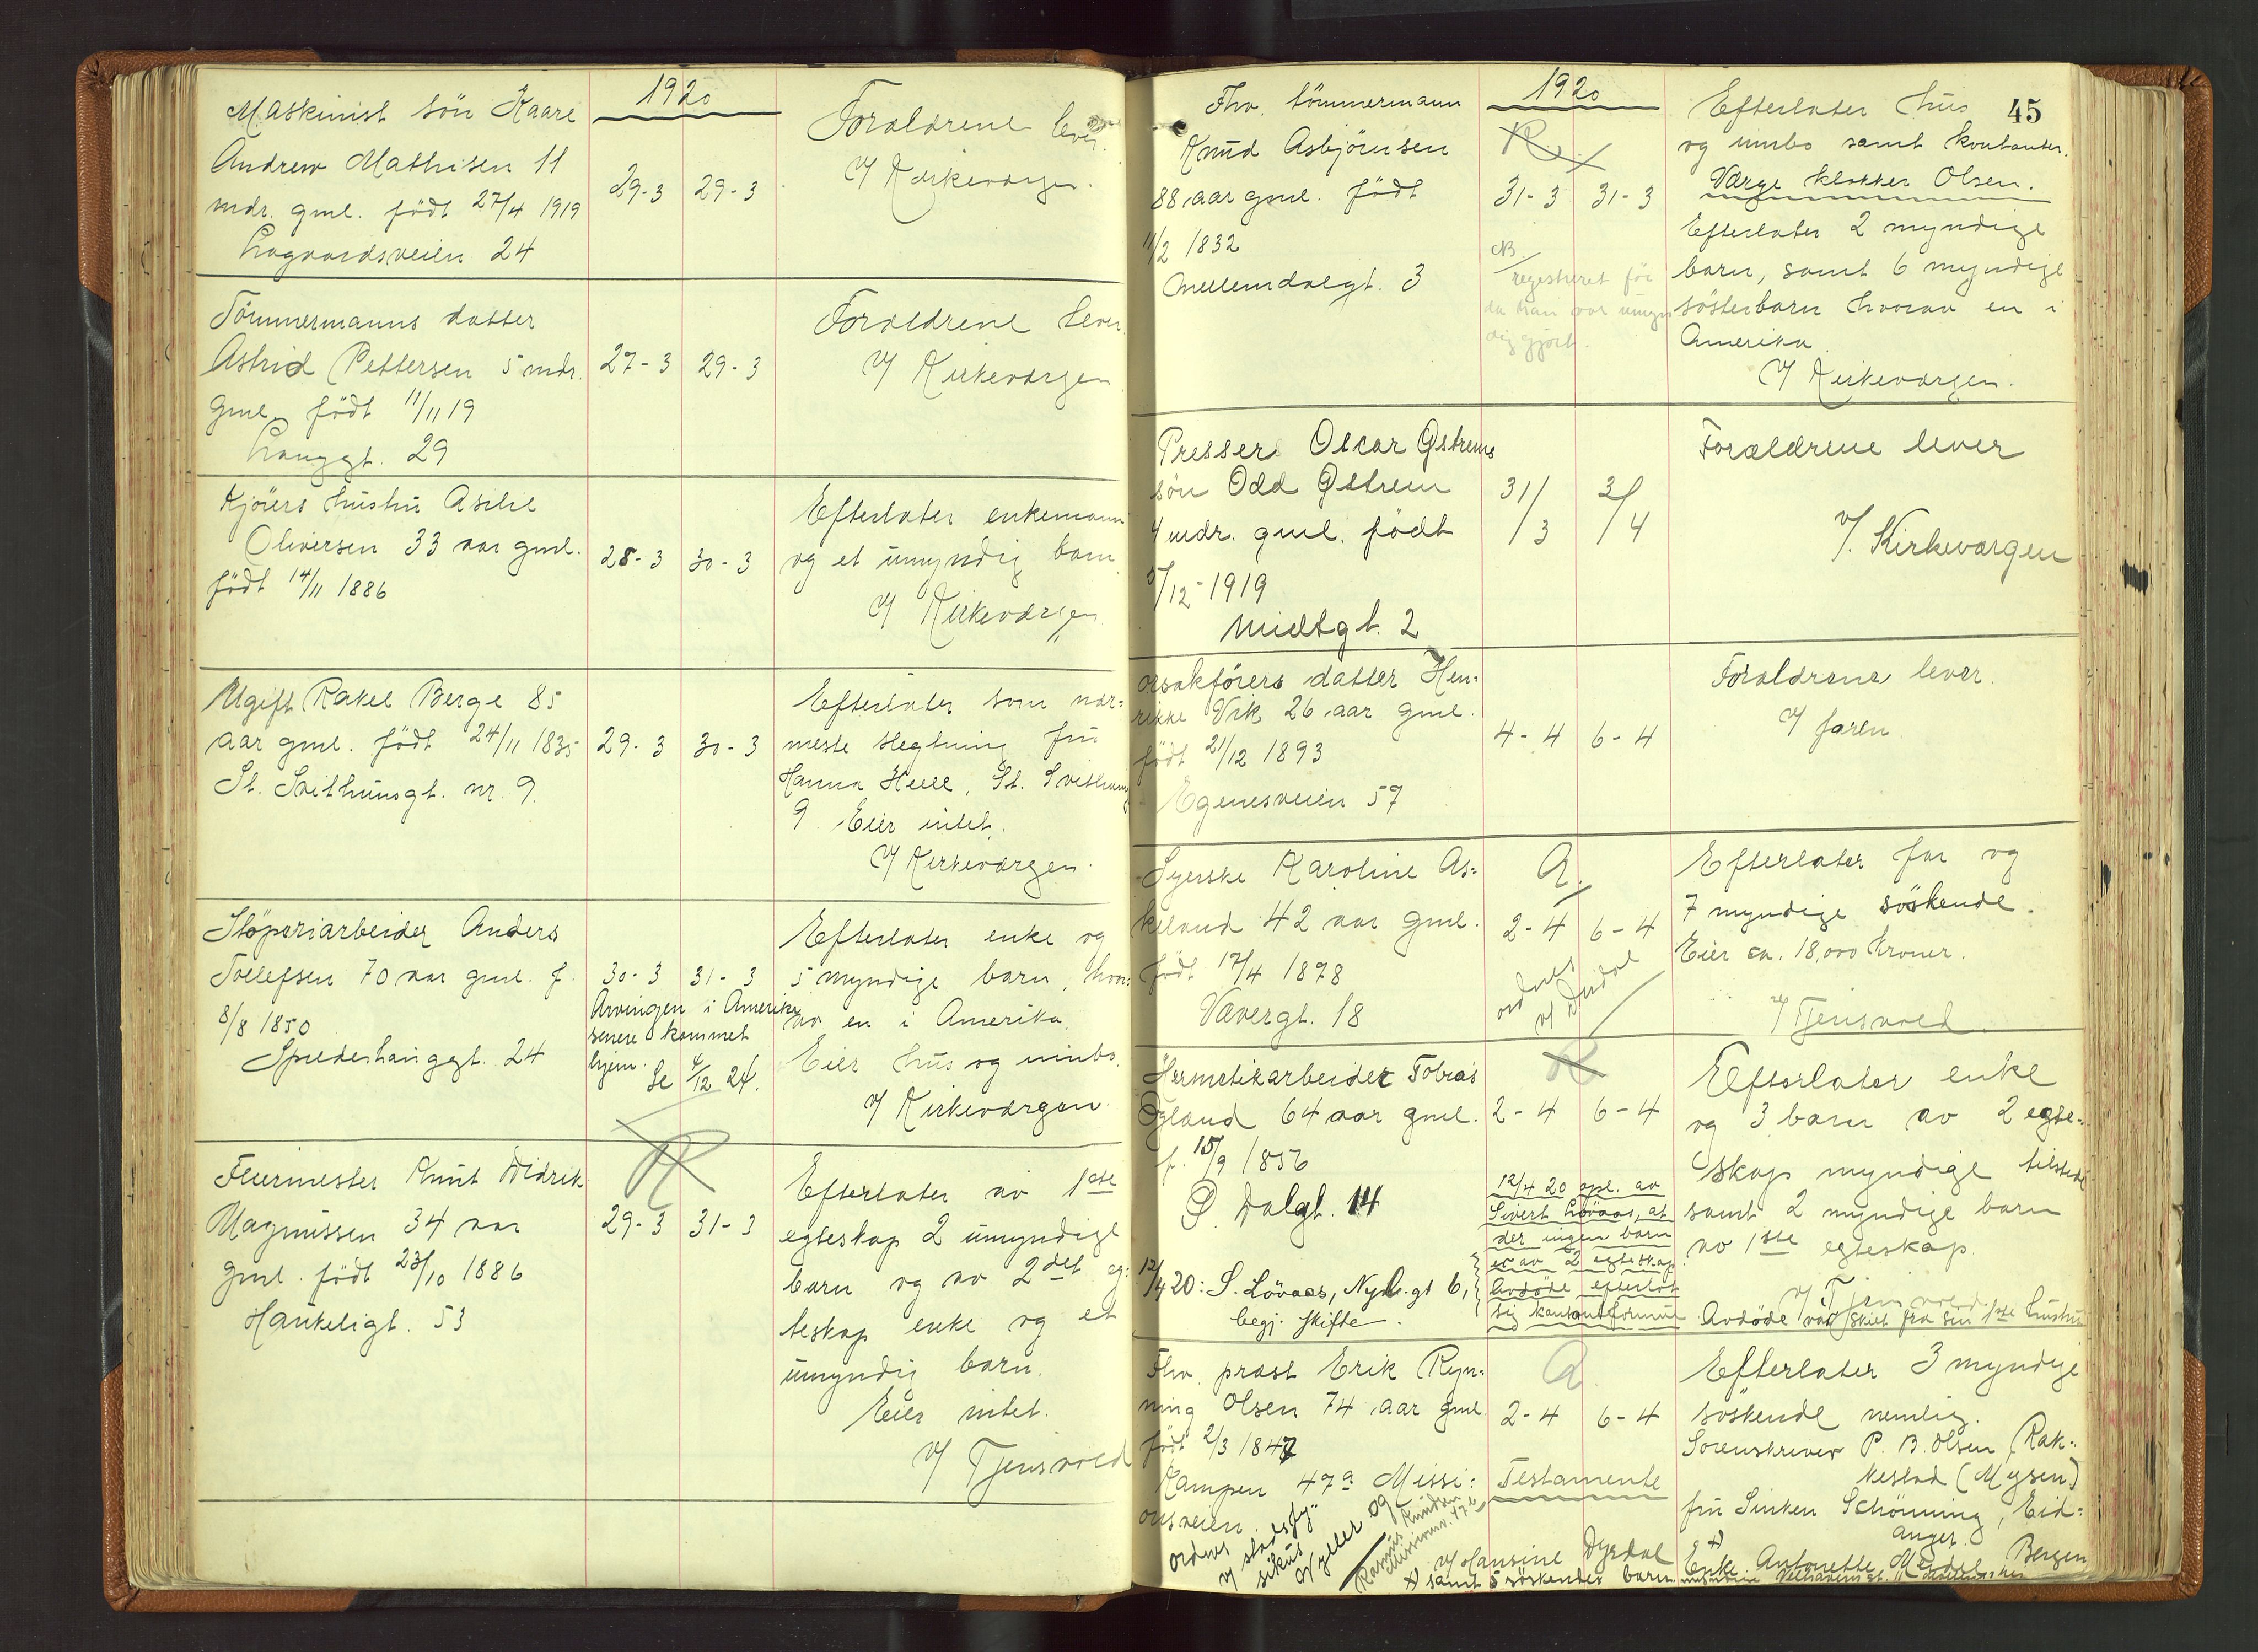 1920
Maskinist søn Kaare
Andrew Mathisen 11
mdr. gml. født 27/4 1919
Lagaardsveien 24
29-3 29-3
Forældrene lever.
v/ Kirkevargen.
Tømmermanns datter
Astrid Pettersen 5 mdr.
gml. født 11/11 19
Langgt. 29
27-3 29-3
Forældrene lever.
v/ Kirkevargen
Kjøiers hustru Asilie
Oliversen 33 aar gml.
født 14/11 1886
28-3 30-3
Efterlater enkemann
og et umyndig barn
v/ Kirkevargen.
Ugift Rakel Berge 85
aar gml. født 24/11 1835
St. Svithunsgt. nr. 9.
29-3 30-3
Efterlater som nær-
meste slegtning fru
Hanna Helle, St. Svithunsg
9. Eier intet.
v/ Kirkevargen.
Støperiarbeider Anders
Tollefsen 70 aar gml. f.
8/8 1850
Spilderhauggt. 24
30-3 31-3
Arvingen i Amerika
senere kommet
hjem. Se 4/12 24.
Efterlater enke og
5 myndige barn, hvor-
av en i Amerika.
Eier hus og innbo
v/ Kirkevargen.
Fyrmester Knut Didrik
Magnussen 34 aar
gml. født 23/10 1886
Haukeligt. 53
R
29-3 31-3
Efterlater av 1ste
egteskap 2 umyndige
barn og av 2det eg-
teskap enke og et
umyndig barn.
Eier intet.
v/ Tjensvold
45
1920
Fhv. tømmermann
Knud Asbjørnsen
88 aar gml. født
11/2 1832
Mellemdalgt. 3
R
31-3 31-3
NB.
registreret før
da han var umyn
dig gjort.
Efterlater hus
og innbo samt kontanter.
Værge klokker Olsen.
Efterlater 2 myndige
barn, samt 6 myndige
søsterbarn hvorav en i
Amerika.
v/ Kirkevargen.
Presser Oscar Østrems
søn Odd Østrem
4 mdr. gml. født
5/12-1919
Midtgt. 2
31/3 3/4
Forældrene lever
v/. Kirkevargen
orsakførers datter Hen-
rikke Vik 26 aar gml.
født 21/12 1893
Egenesveien 57
4-4 6-4
Forældrene lever.
v/ faren.
Syerske Karoline As-
keland 42 aar gml.
født 17/4 1878
Vævergt. 18
A.
2-4 6-4
ordnes
v/ Dysdal
Efterlater far og
7 myndige søskende.
Eier ca. 18,000 kroner.
v/ Tjensvold
Hermetikarbeider Tobias
Øgland 64 aar gml.
f. 15/9 1856
P. Dalgt. 14
12/4 20: S. Lövaas, Nyb.gt 6,
begj. skifte.
2-4 6-4
12/4 20 opl. av
Sivert Lövaas, at
der ingen barn
er av 2 egteskap
Avdøde efterlot
sig kontantformue
Efterlater enke
og 3 barn av 2 egte-
skap myndige tilstede
samt 2 myndige barn
av 1ste egteskap.
v/ Tjensvold.
Avdøde var skilt fra sin 1ste hustru
Fhv. prost Erik Ryn-
ning Olsen 74 aar gml
født 2/3 1847
Kampen 47a Missi-
onsveien.
ordnes
v/ stadsfy-
sikus
Nyller og
Rasmus Knudsen
Missionsv. 47b
A.
2-4 6-4
Testamente
Efterlater 3 myndige
søskende nemlig.
Sorenskriver P. B. Olsen, Rak-
kestad (Mysen)
fru Sinken Schönning, Eid-
anger x)
Enke Antonette Meidell, Bergen
v/ Hansine Dysdal
x) samt 5 søskendes barn